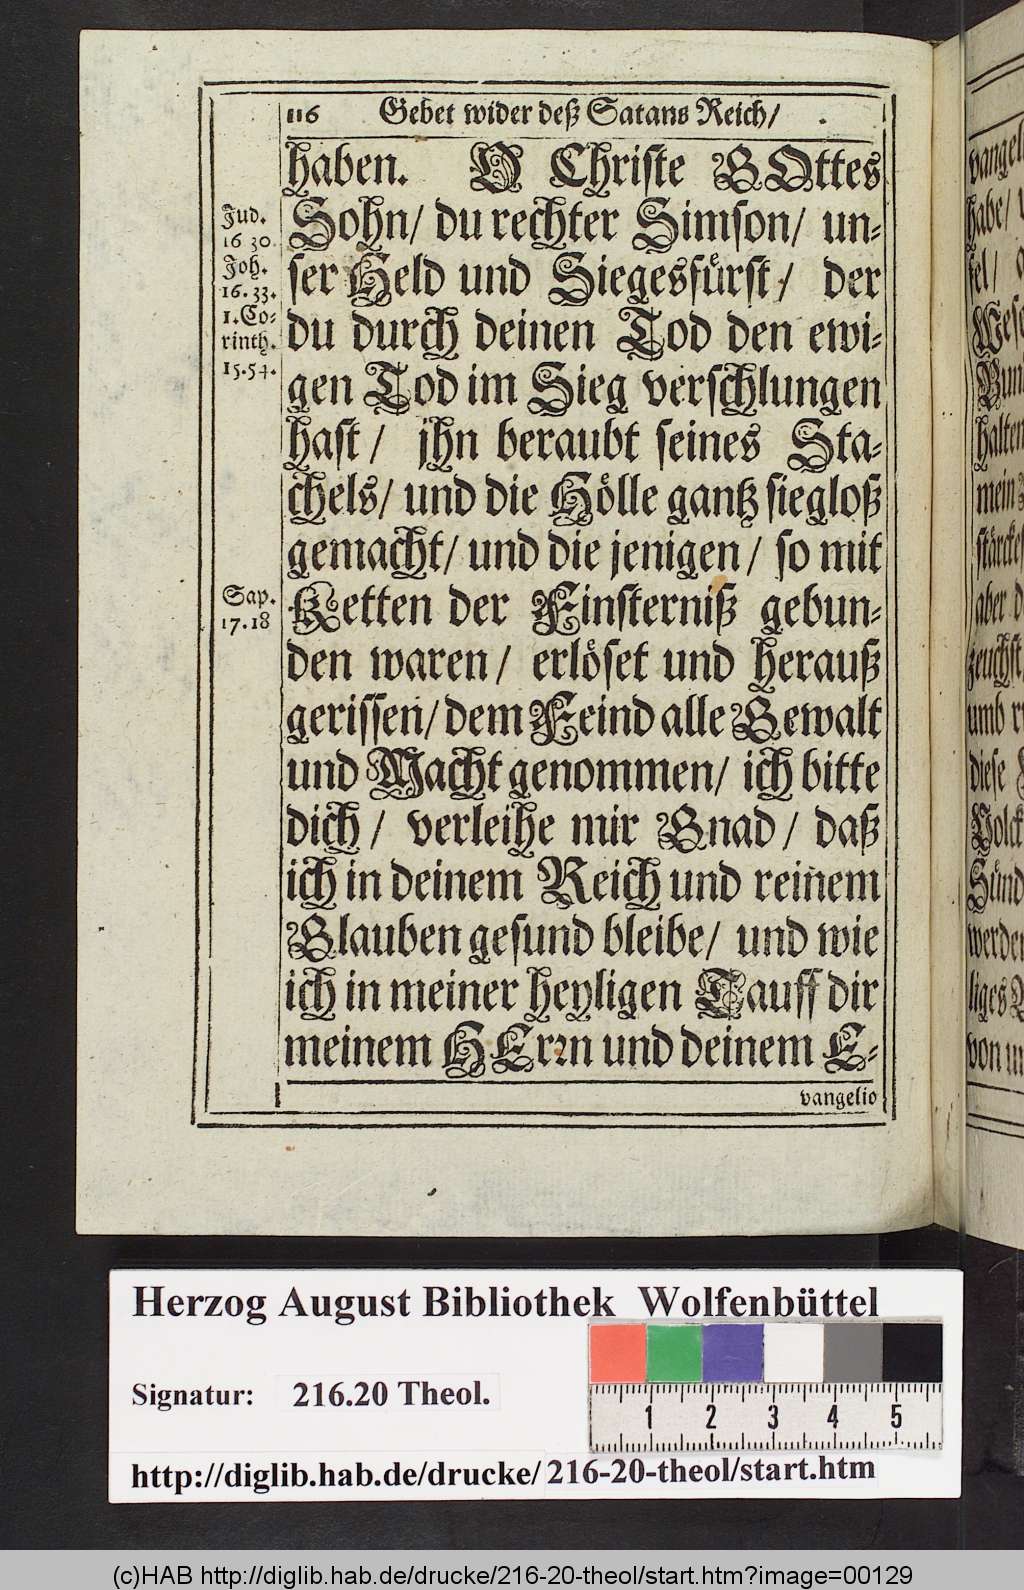 116 Gebet wider deß Satans Reich/
haben. O Christe GOttes
Sohn/ du rechter Simson/ un-
ser Held und Siegesfürst/ der
du durch deinen Tod den ewi-
gen Tod im Sieg verschlungen
hast/ jhn beraubt seines Sta-
chels/ und die Hölle gantz siegloß
gemacht/ und die jenigen/ so mit
Ketten der Finsterniß gebun-
den waren/ erlöset und herauß
gerissen/ dem Feind alle Gewalt
und Macht genommen/ ich bitte
dich/ verleihe mir Gnad/ daß
ich in deinem Reich und reinem
Glauben gesund bleibe/ und wie
ich in meiner heyligen Tauff dir
meinem HErrn und deinem E-
vangelio
Jud.
16 30.
Joh.
16.33.
1.Co-
rinth.
15.54.
Sap.
17.18
vangel
habe/
sel/
Wese
Bun
halten
mein
stärcke
aber d
zeuchst
umb
diese
Volck
Sünd
werden
liges
von
Herzog August Bibliothek Wolfenbüttel
Signatur: 216.20 Theol.
1 2 3 4 5
http://diglib.hab.de/drucke/216-20-theol/start.htm
(c)HAB http://diglib.hab.de/drucke/216-20-theol/start.htm?image=00129